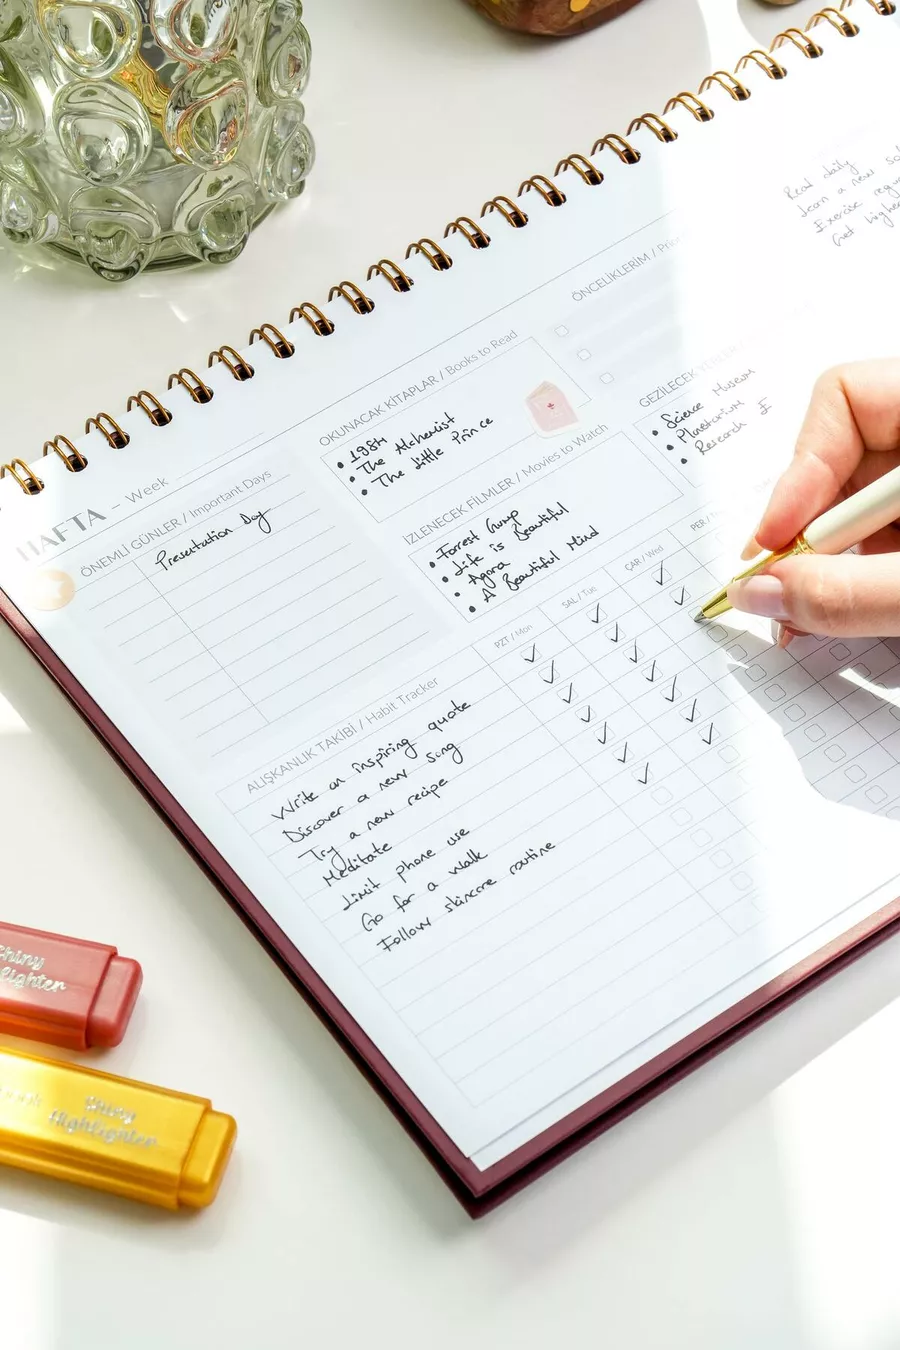 HAFTA – Week
ÖNEMLİ GÜNLER / Important Days
Presentation Day
OKUNACAK KİTAPLAR / Books to Read
• 1984
• The Alchemist
• The Little Prince
İZLENECEK FİLMLER / Movies to Watch
• Forest Gump
• Life is Beautiful
• Agora
• A Beautiful Mind
ÖNCELİKLERİM /
Read daily
Learn a new
Exercise
Get
GEZİLECEK
• Science Museum
• Planetarium
• Research
ALIŞKANLIK TAKİBİ / Habit Tracker
PZT / Mon
SAL / Tue
ÇAR / Wed
PER /
Write an inspiring quote
Discover a new song
Try a new recipe
Meditate
Limit phone use
Go for a walk
Follow skincare routine
Shiny
Shiny
Highlighter